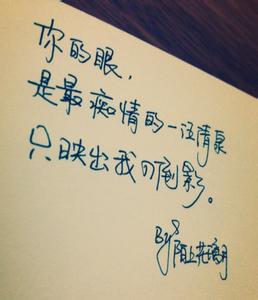 你的眼，
是最痴情的一汪清泉
只映出我的倒影。
By：陌上花满月